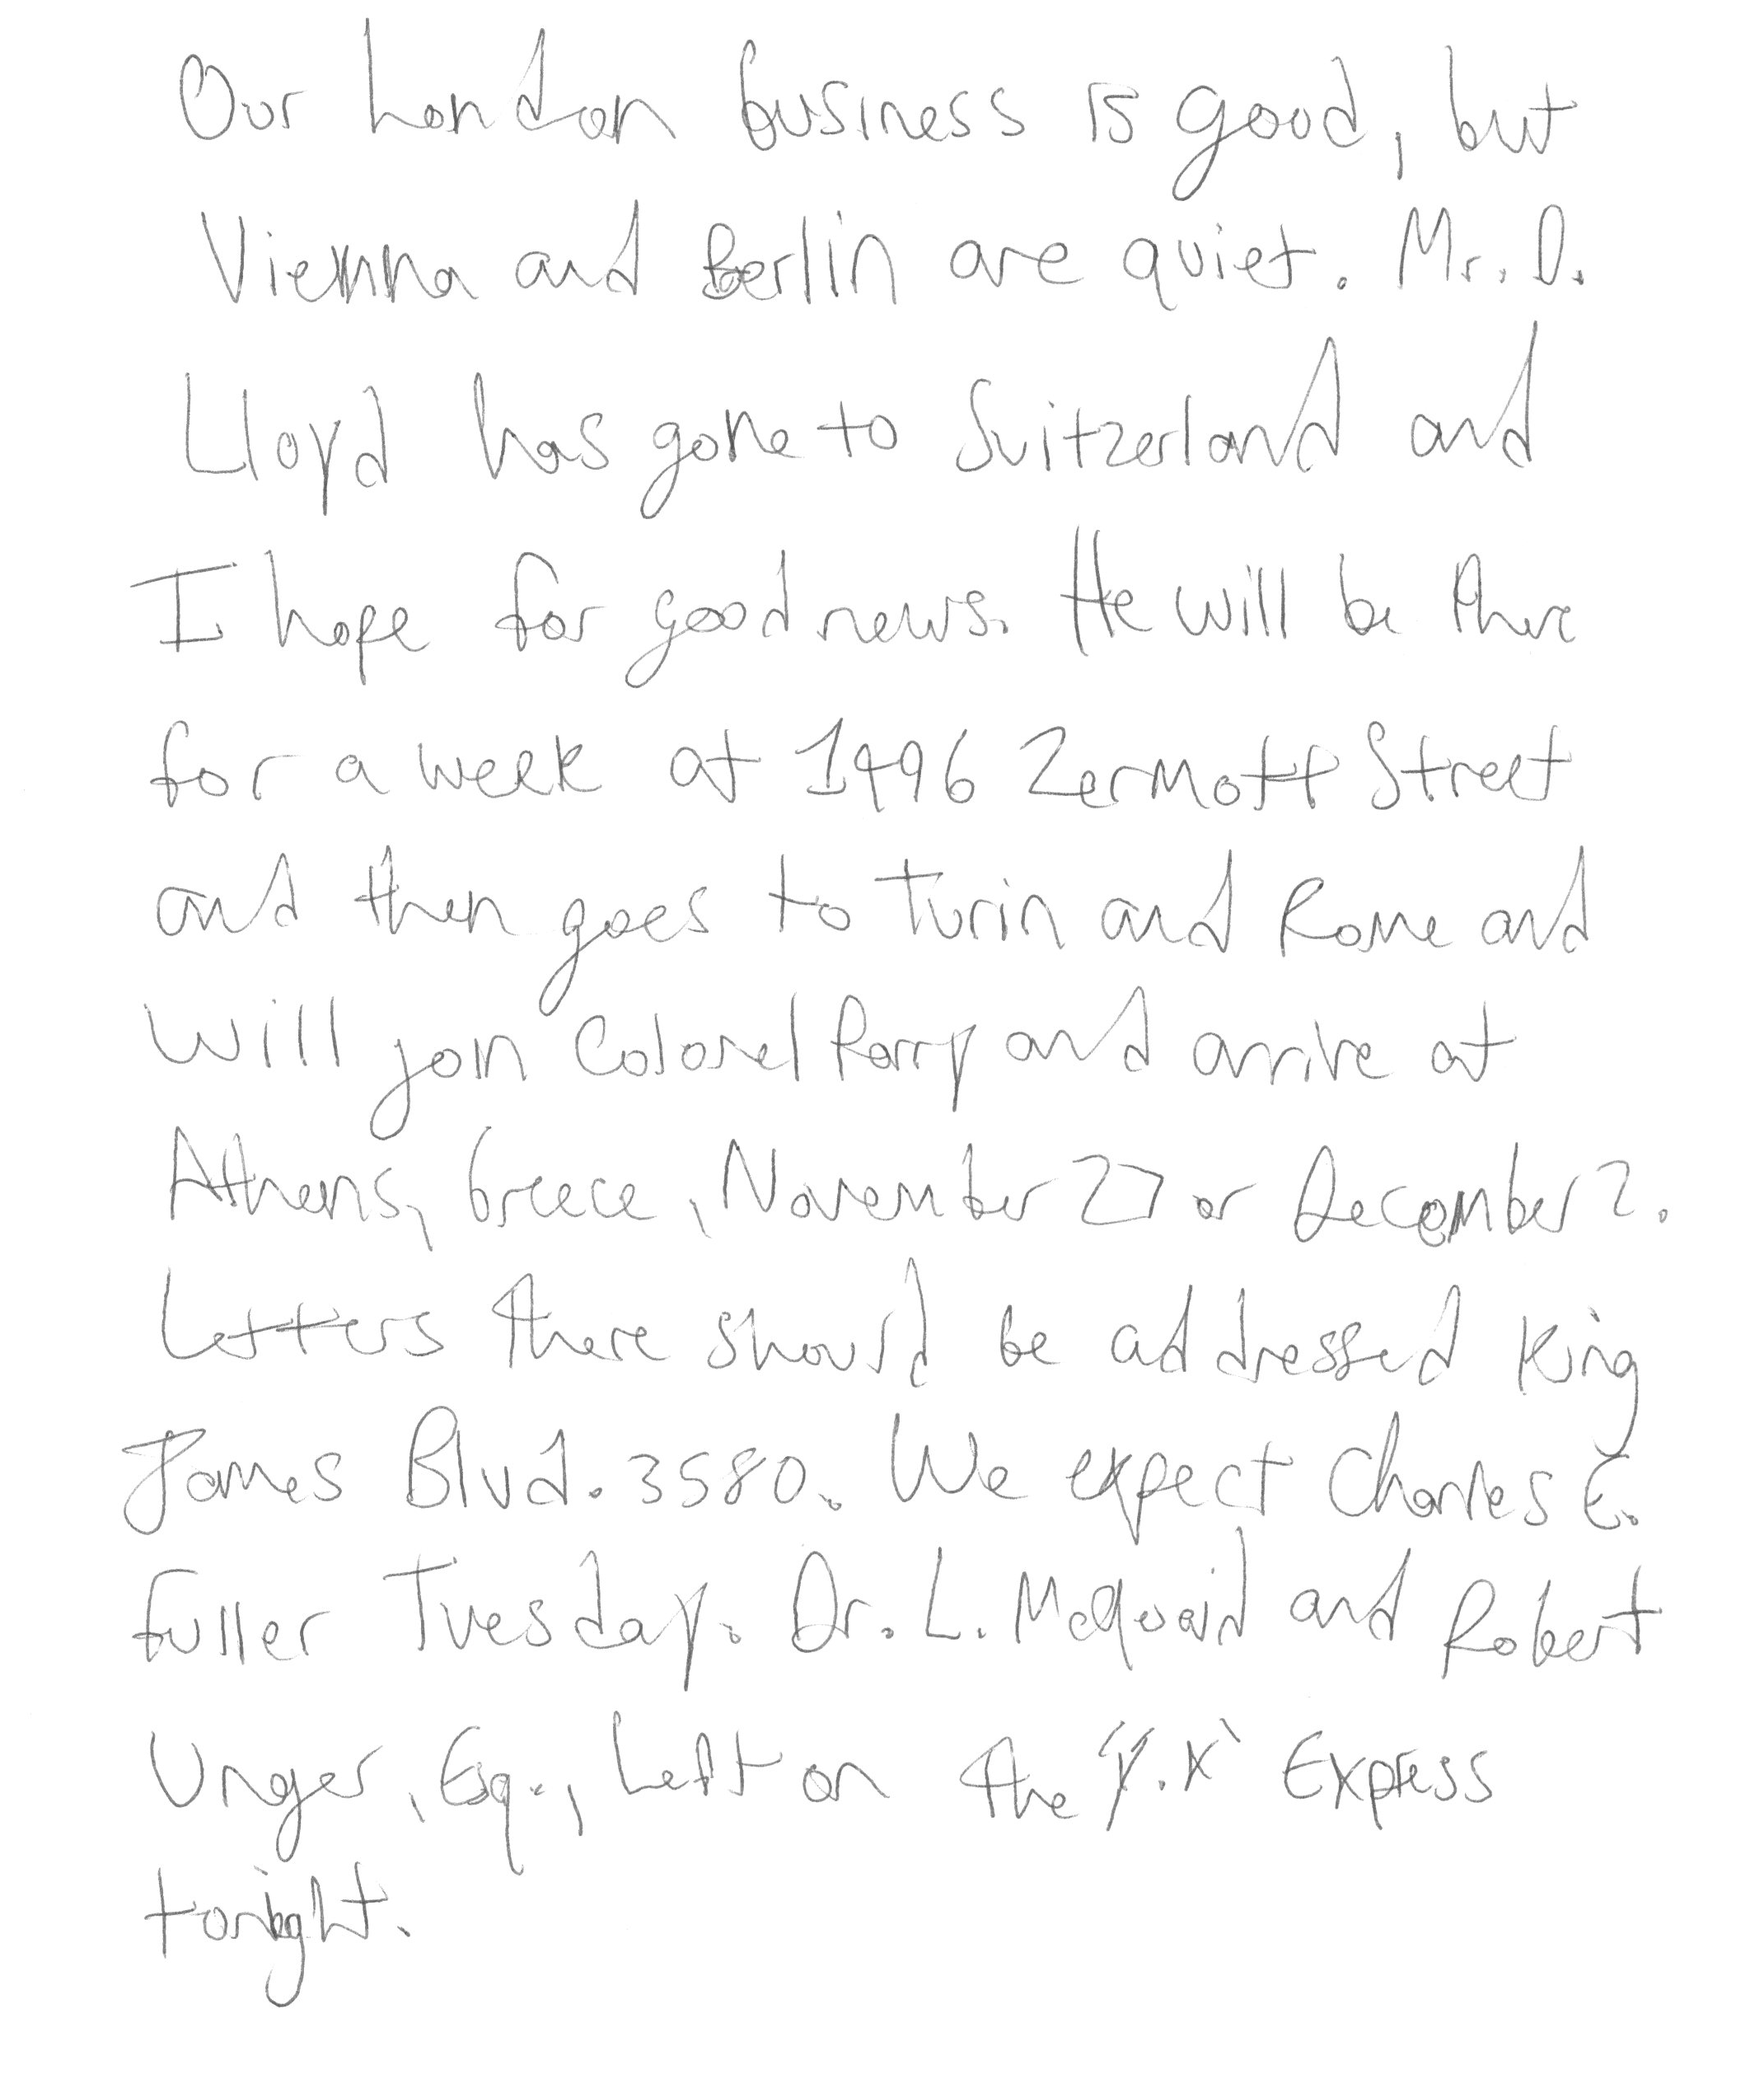 Our London business is good, but
Vienna and Berlin are quiet. Mr. D.
Lloyd has gone to Switzerland and
I hope for good news. He will be there
for a week at 1496 Zermott Street
and then goes to Turin and Rome and
will join Colonel Parry and arrive at
Athens, Greece, November 27 or December 2.
Letters there should be addressed King
James Blvd. 3580. We expect Charles E.
Fuller Tuesday. Dr. L. McQuaid and Robert
Unger, Esq., left on the "Y.X" Express
tonight.